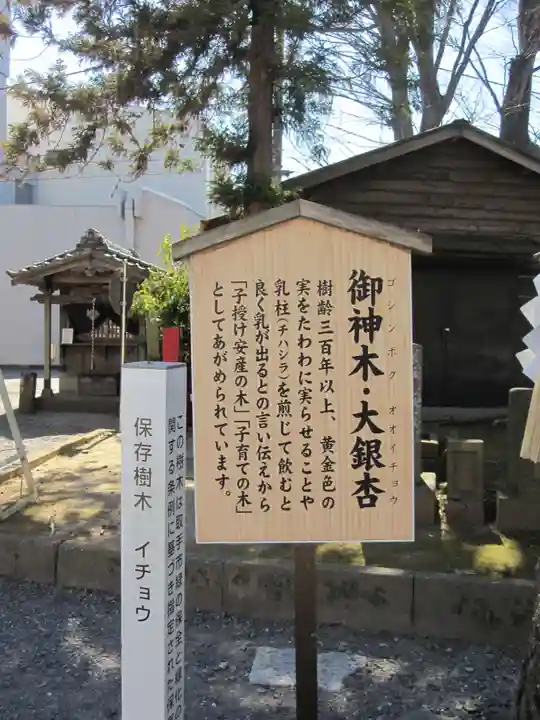 御神木・大銀杏
ゴシンボク オオイチョウ
樹齢三百年以上、黄金色の
実をたわわに実らせることや
乳柱(チハシラ)を煎じて飲むと
良く乳が出るとの言い伝えから
「子授け安産の木」「子育ての木」
としてあがめられています。
この樹木は取手市緑の保全と緑化の
関する条例に基づき指定された保
保存樹木 イチョウ